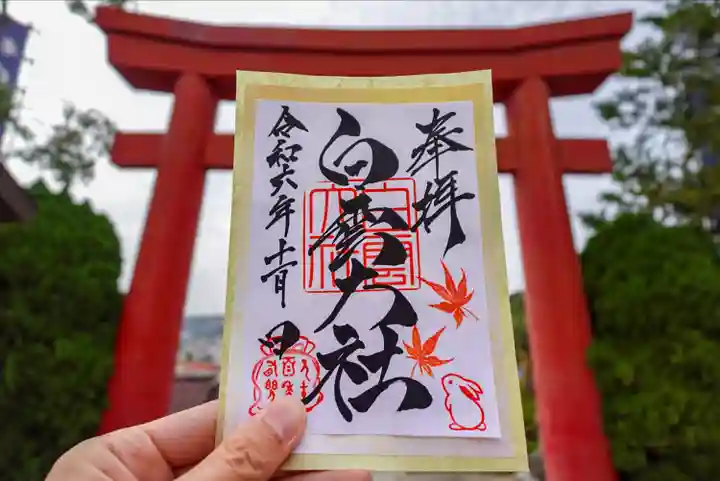 奉拝
白雲大社
令和六年十一月 日